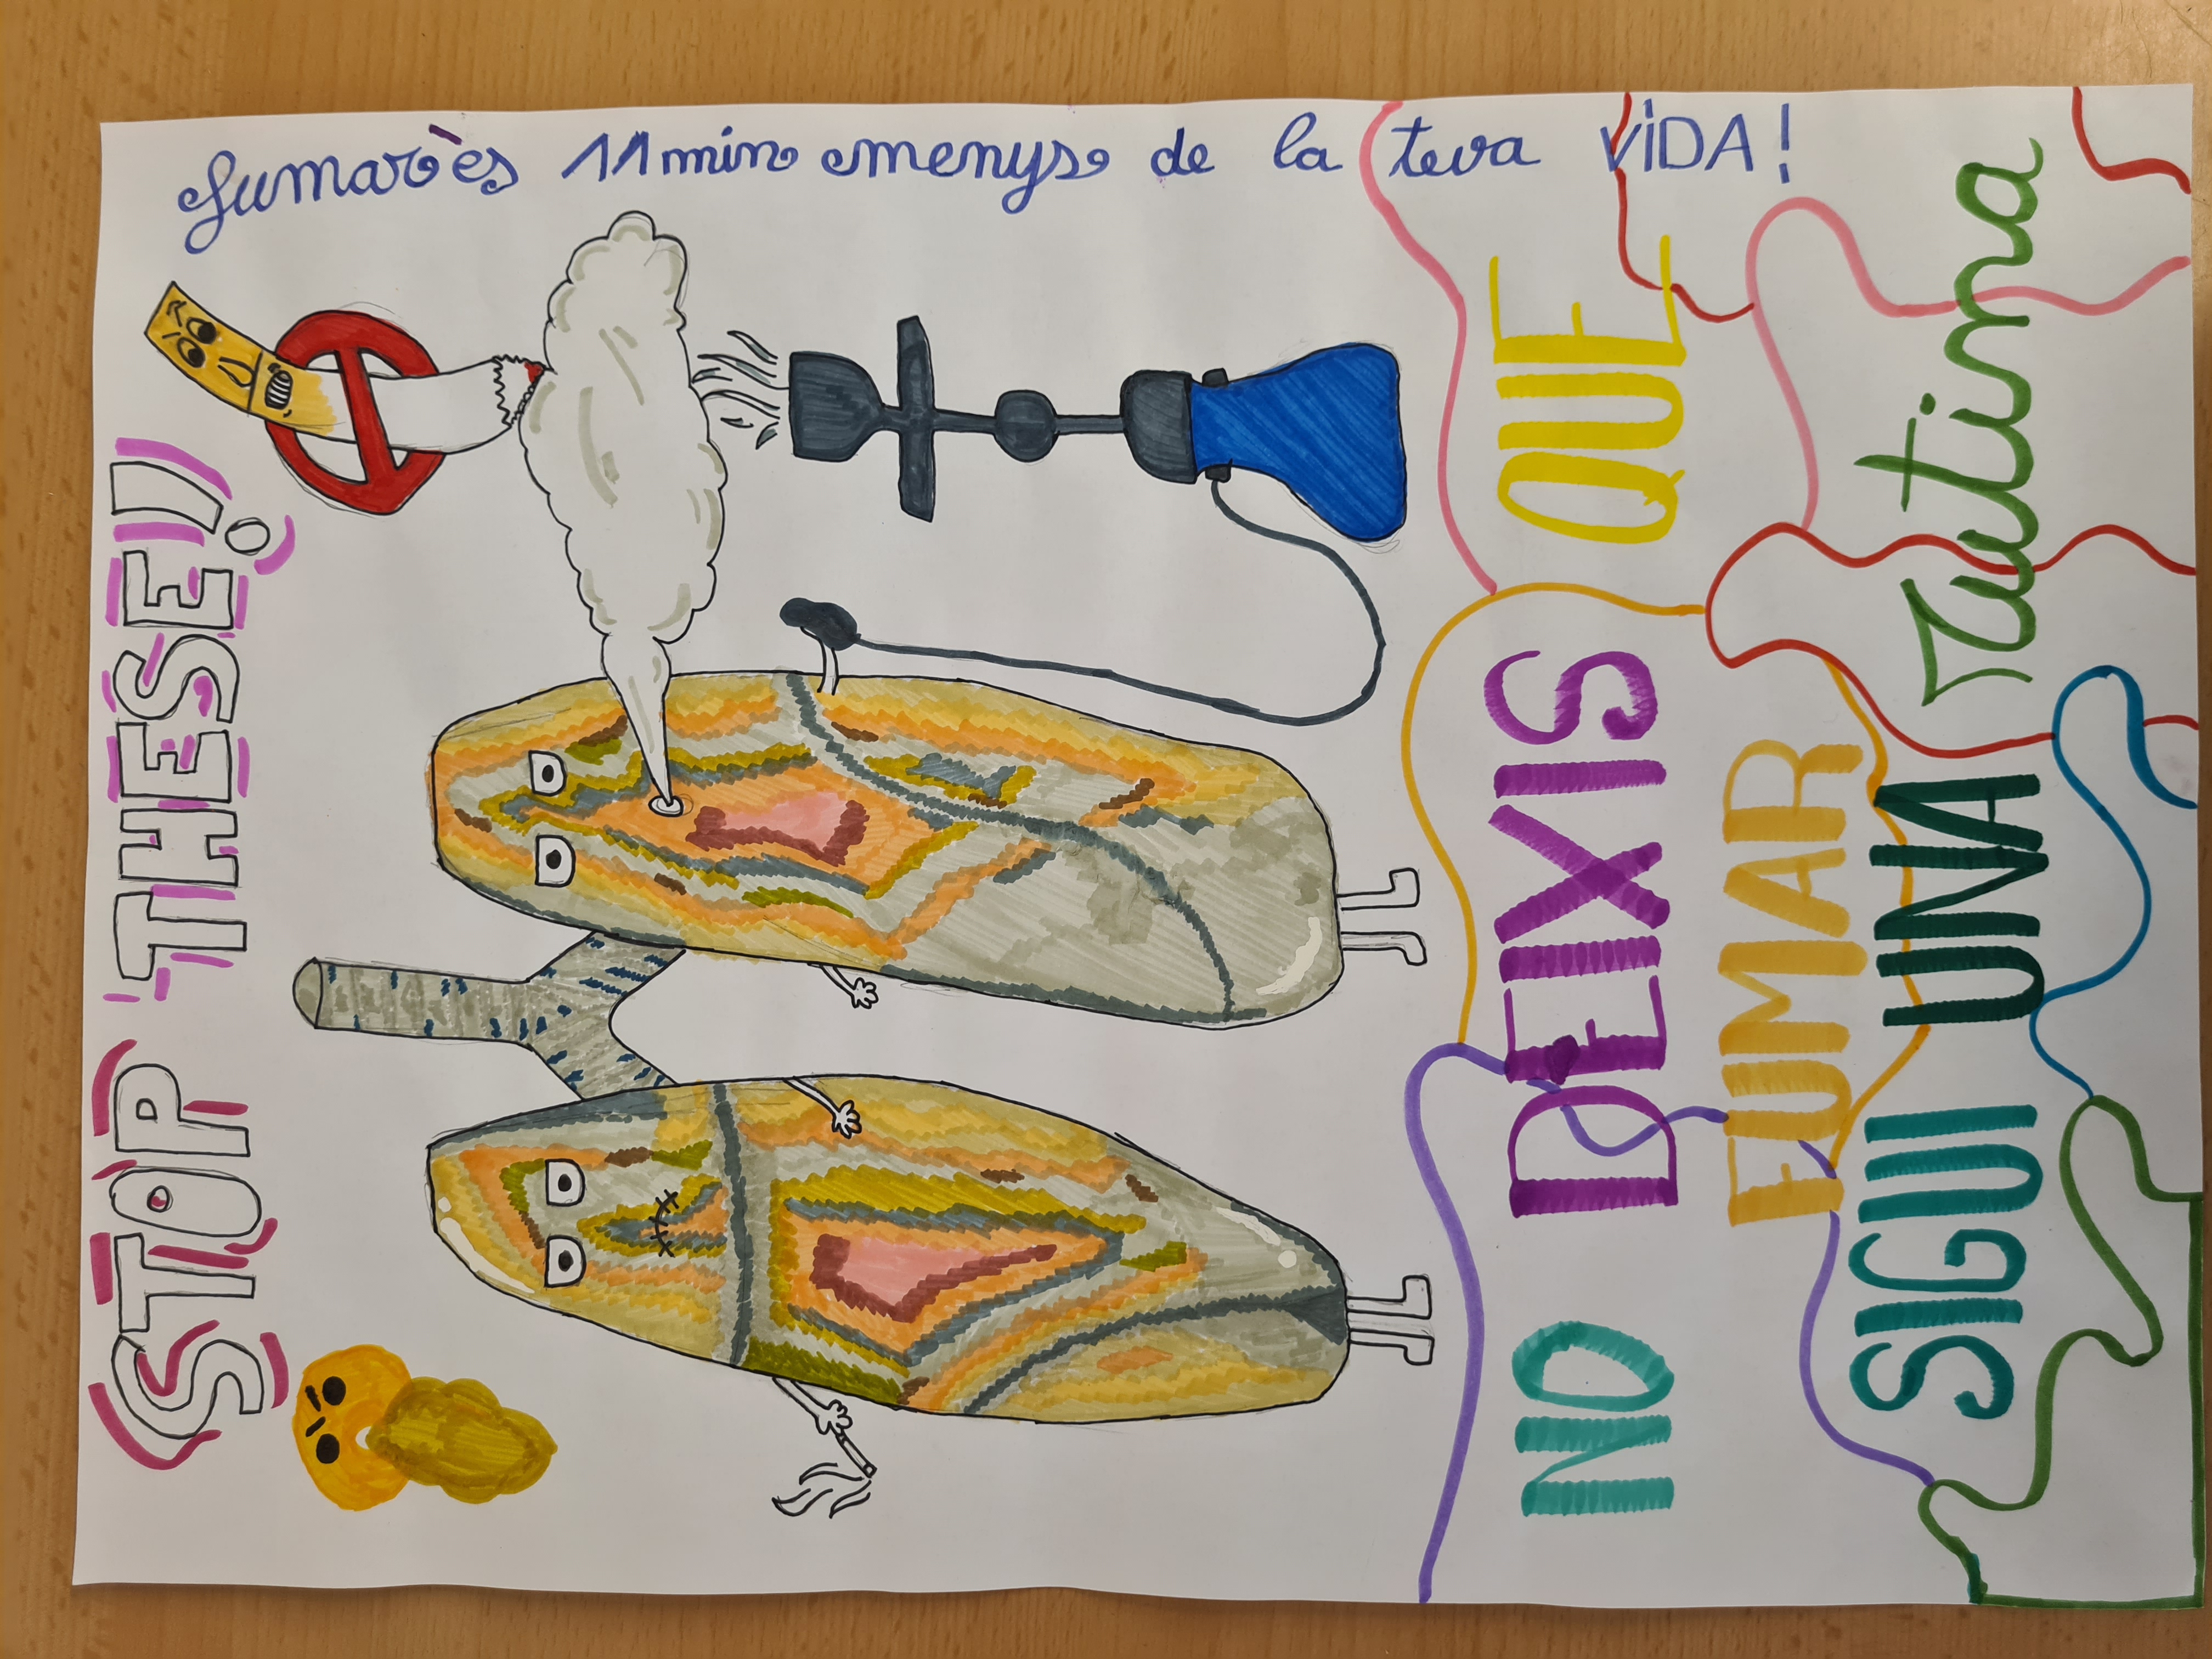 STOP THESE!
fumar ès 11 min menys de la teva VIDA!
NO DEIXIS QUE
FUMAR
SIGUI UNA rutina